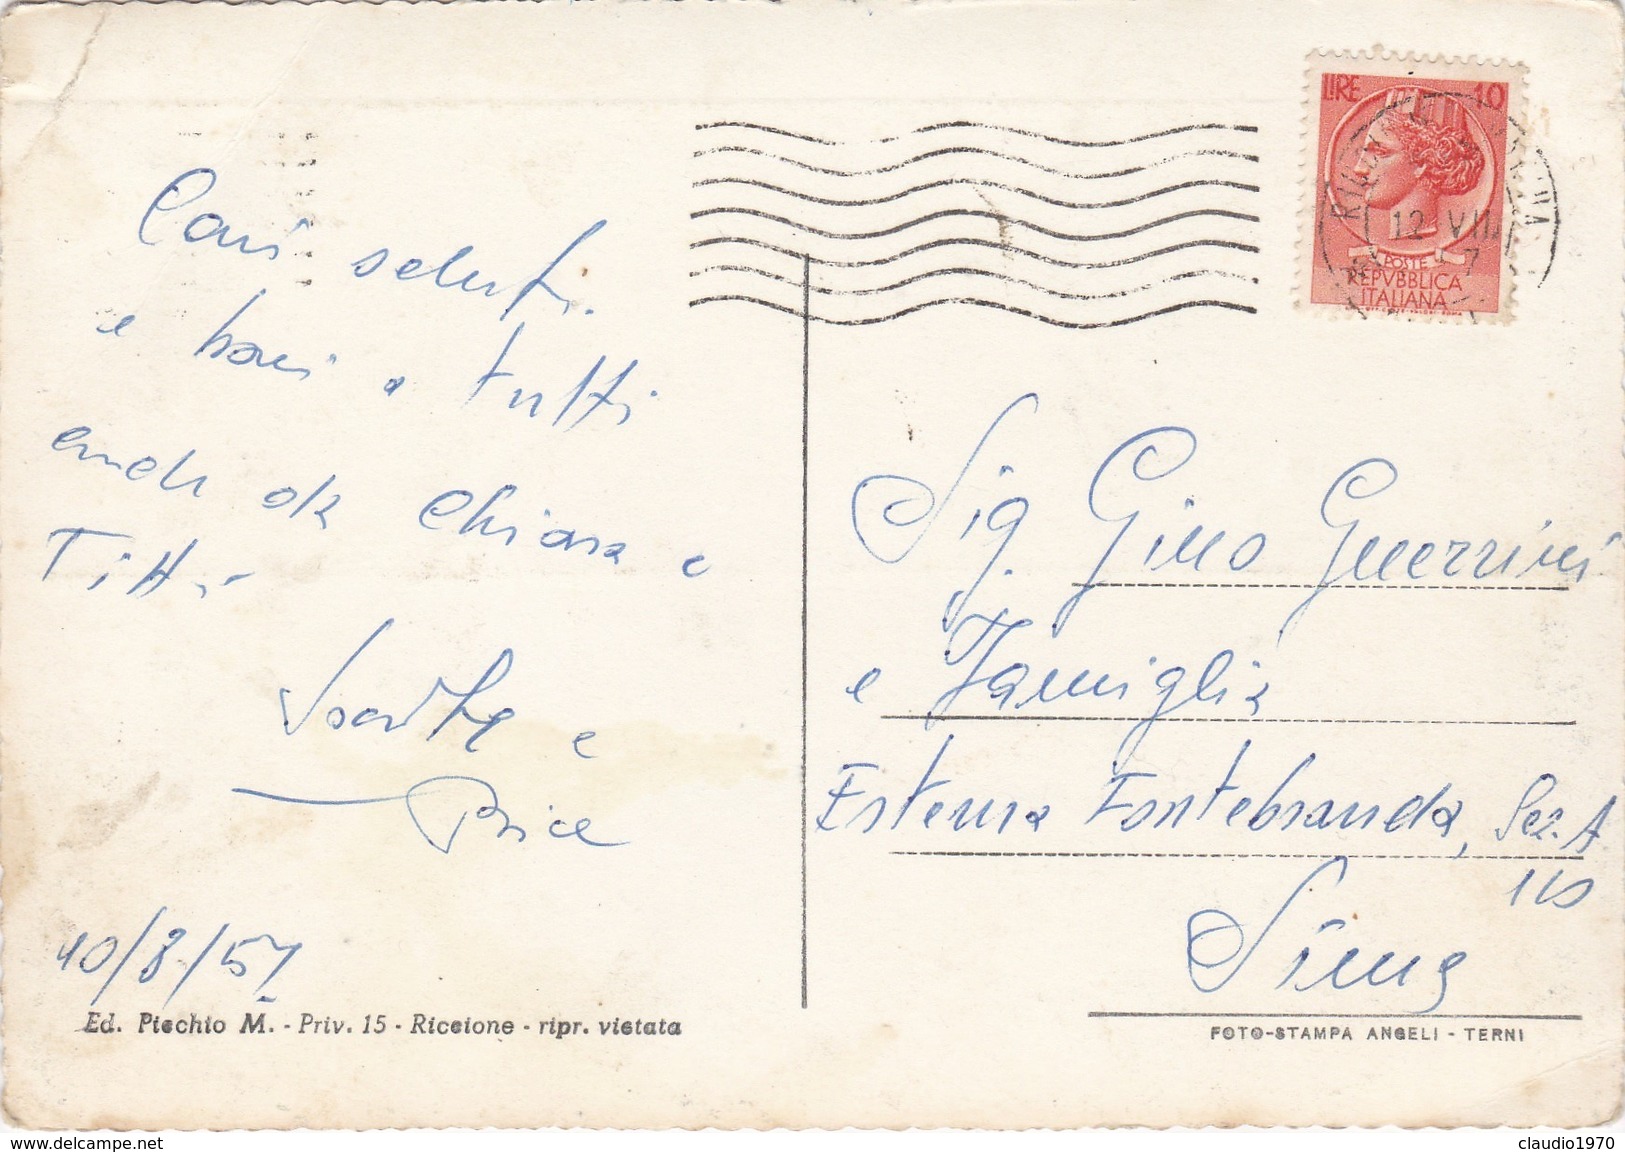 Cari saluti
e baci a tutti
anche da Chiara e
Titti
e
10/8/57
Ed. Picchio M. - Priv. 15 - Riccione - ripr. vietata
LIRE 10
12 VII
POSTE
REPVBBLICA
ITALIANA
Sig. Gino Guerrini
e Famiglia
Esterna Fontebranda, Sez. A
Siena
FOTO-STAMPA ANGELI - TERNI
delcampe.net
claudio1970